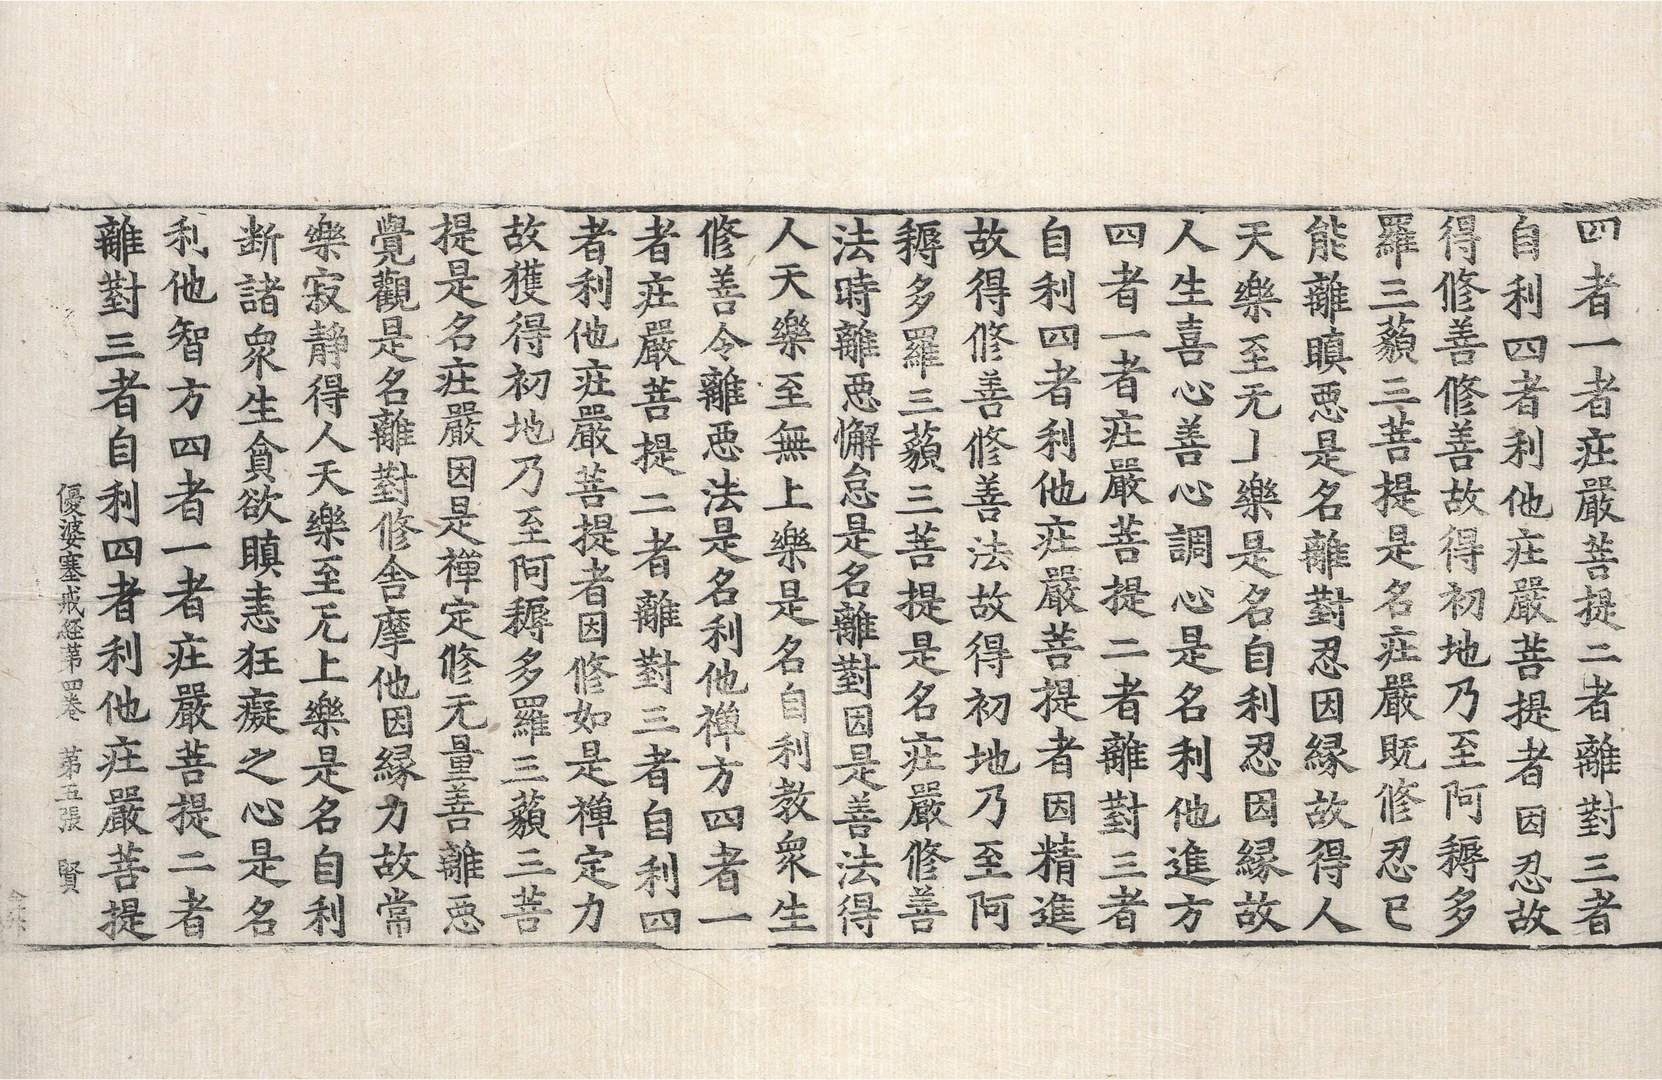 四者一者㽵嚴菩提二者離對三者
自利四者利他㽵嚴菩提者因忍故
得修善修善故得初地乃至阿耨多
羅三藐三菩提是名㽵嚴既修忍已
能離瞋惡是名離對忍因縁故得人
天樂至无上樂是名自利忍因縁故
人生喜心善心調心是名利他進方
四者一者㽵嚴菩提二者離對三者
自利四者利他㽵嚴菩提者因精進
故得修善修善法故得初地乃至阿
耨多羅三藐三菩提是名㽵嚴修善
法時離惡懈怠是名離對因是善法得
人天樂至無上樂是名自利教衆生
修善令離惡法是名利他禪方四者一
者㽵嚴菩提二者離對三者自利四
者利他㽵嚴菩提者因修如是禪定力
故獲得初地乃至阿耨多羅三藐三菩
提是名㽵嚴因是禪定修无量善離惡
覺觀是名離對修舍摩他因縁力故常
樂寂靜得人天樂至无上樂是名自利
斷諸衆生貪欲瞋恚狂癡之心是名
利他智方四者一者㽵嚴菩提二者
離對三者自利四者利他㽵嚴菩提
優婆塞戒経苐四卷 苐五張 賢